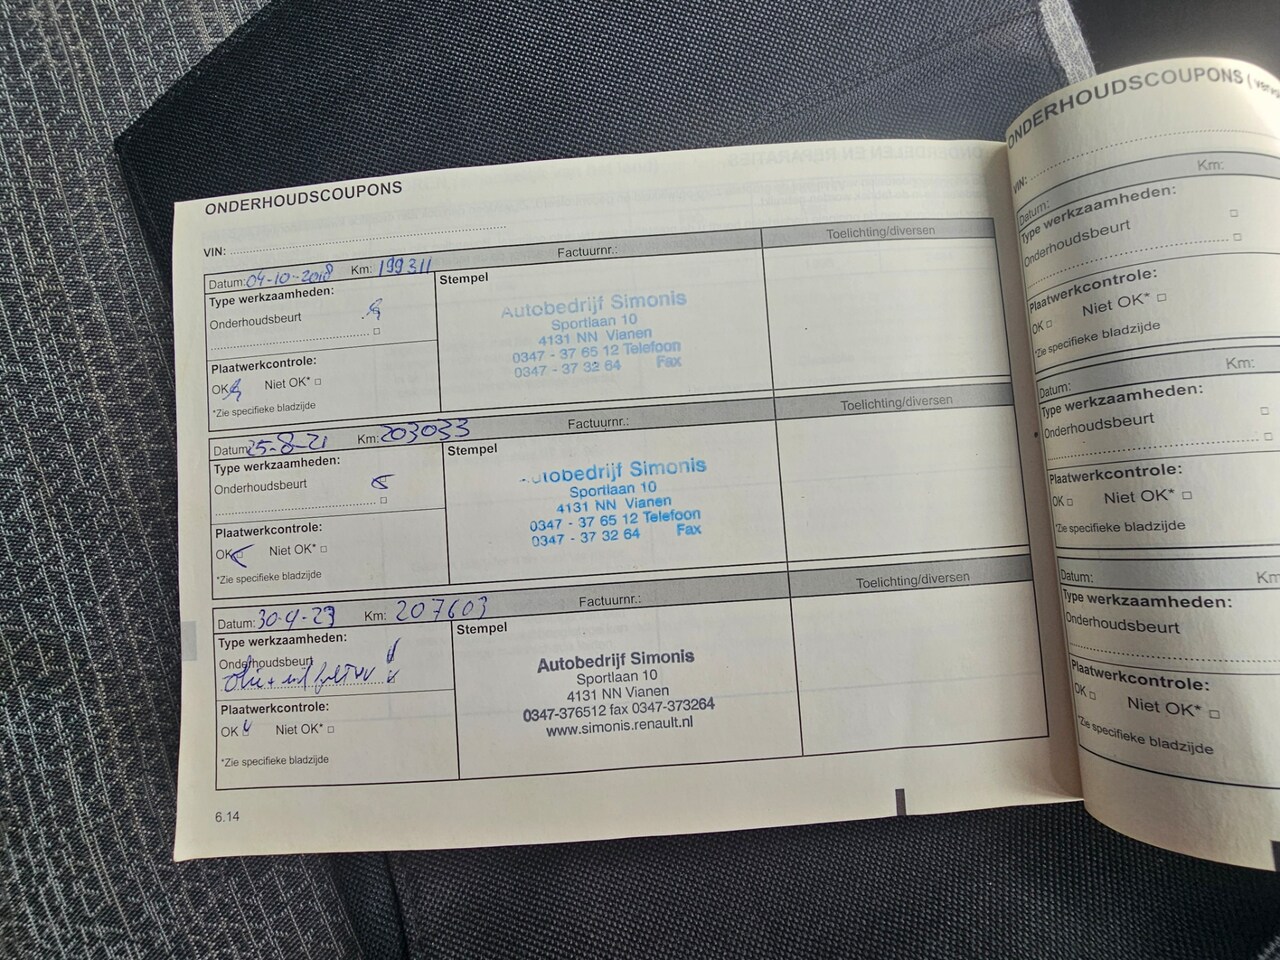 ONDERHOUDSCOUPONS
VIN:
Datum: 04-10-2018 Km: 199311 Factuurnr.: Toelichting/diversen
Type werkzaamheden:
Onderhoudsbeurt
Plaatwerkcontrole:
OK Niet OK*
*Zie specifieke bladzijde
Stempel
Autobedrijf Simonis
Sportlaan 10
4131 NN Vianen
0347 - 37 65 12 Telefoon
0347 - 37 32 64 Fax
Datum: 25-8-21 Km: 203033 Factuurnr.: Toelichting/diversen
Type werkzaamheden:
Onderhoudsbeurt
Plaatwerkcontrole:
OK Niet OK*
*Zie specifieke bladzijde
Stempel
Autobedrijf Simonis
Sportlaan 10
4131 NN Vianen
0347 - 37 65 12 Telefoon
0347 - 37 32 64 Fax
Datum: Km: 207603 Factuurnr.: Toelichting/diversen
Type werkzaamheden:
Onderhoudsbeurt
Plaatwerkcontrole:
OK Niet OK*
*Zie specifieke bladzijde
Stempel
Autobedrijf Simonis
Sportlaan 10
4131 NN Vianen
0347-376512 fax 0347-373264
www.simonis.renault.nl
6.14
ONDERHOUDSCOUPONS
VIN:
Datum: Km:
Type werkzaamheden:
Onderhoudsbeurt
Plaatwerkcontrole:
OK Niet OK*
*Zie specifieke bladzijde
Datum: Km:
Type werkzaamheden:
Onderhoudsbeurt
Plaatwerkcontrole:
OK Niet OK*
*Zie specifieke bladzijde
Datum: Km
Type werkzaamheden:
Onderhoudsbeurt
Plaatwerkcontrole:
OK Niet OK*
*Zie specifieke bladzijde